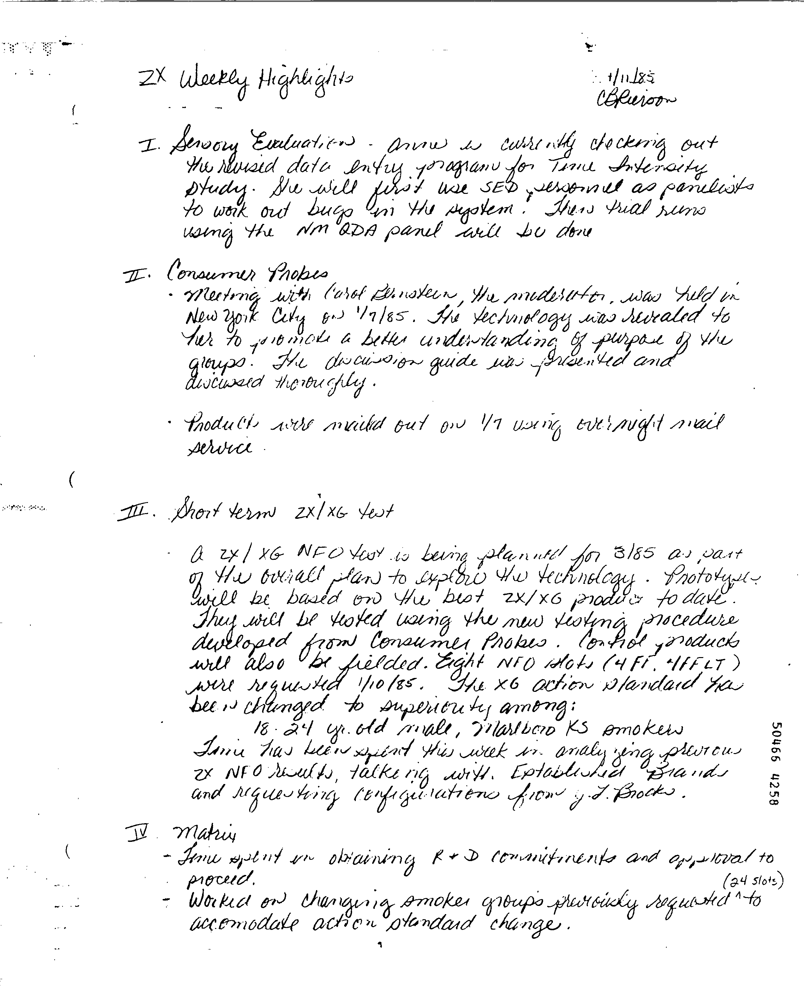 ZX Weekly Highlights
1/11/85
CBPierson
I. Sensory Evaluation - Anne is currently checking out
the revised data entry program for Time Intensity
Study. She will first use SED personnel as panelists
to work out bugs in the system. Then trial runs
using the NM QDA panel will be done
II. Consumer Probes
· Meeting with Carol Bernstein, the moderator, was held in
New York City on 1/7/85. The technology was revealed to
her to promote a better understanding of purpose of the
groups. The discussion guide was presented and
discussed thoroughly.
· Products were mailed out on 1/7 using overnight mail
service.
III. Short term ZX/XG test
· A ZX/XG NFO test is being planned for 3/85 as part
of the overall plan to explore the technology. Prototypes
will be based on the best ZX/XG product to date.
They will be tested using the new testing procedure
developed from Consumer Probes. Control products
will also be fielded. Eight NFO slots (4FF, 4FFLT)
were requested 1/10/85. The XG action standard has
been changed to superiority among:
18-24 yr. old male, Marlboro KS smokers
Time has been spent this week in analyzing previous
ZX NFO results, talking with Established Brands
and requesting configurations from Brooks.
IV. Matrix
- Time spent in obtaining R+D commitments and approval to
proceed.
(24 slots)
- Worked on changing smoker groups previously requested ^ to
accomodate action standard change.
50466 4258